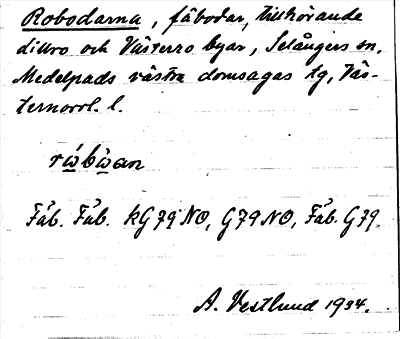 Robodarna, fäbodar, tillhörande
dittro och Västerro byar, Selångers sn,
Medelpads västra domsagas tg, Väs-
ternorrl. l.
rὼbὼan
Fäb. Fäb. kG79NO, G79NO, Fäb. G79.
A. Vestlund 1934.